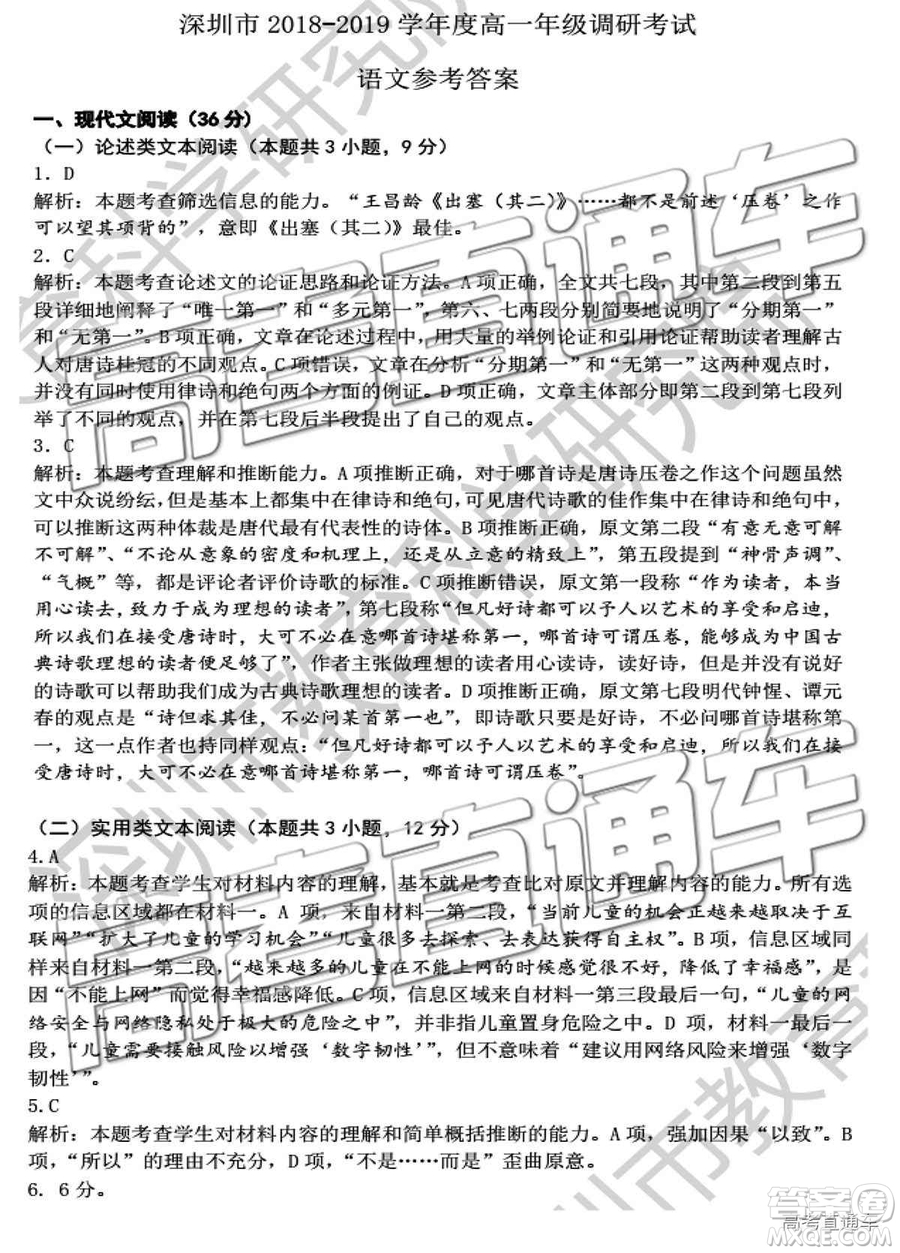 深圳市 2018-2019 学年度高一年级调研考试
语文参考答案
一、现代文阅读（36 分）
（一）论述类文本阅读（本题共 3 小题，9 分）
1．D
解析：本题考查筛选信息的能力。“王昌龄《出塞（其二）》……都不是前述‘压卷’之作
可以望其项背的”，意即《出塞（其二）》最佳。
2．C
解析：本题考查论述文的论证思路和论证方法。A 项正确，全文共七段，其中第二段到第五
段详细地阐释了“唯一第一”和“多元第一”，第六、七两段分别简要地说明了“分期第一”
和“无第一”。B 项正确，文章在论述过程中，用大量的举例论证和引用论证帮助读者理解古
人对唐诗桂冠的不同观点。C 项错误，文章在分析“分期第一”和“无第一”这两种观点时，
并没有同时使用律诗和绝句两个方面的例证。D 项正确，文章主体部分即第二段到第七段列
举了不同的观点，并在第七段后半段提出了自己的观点。
3．C
解析：本题考查理解和推断能力。A 项推断正确，对于哪首诗是唐诗压卷之作这个问题虽然
文中众说纷纭，但是基本上都集中在律诗和绝句，可见唐代诗歌的佳作集中在律诗和绝句中，
可以推断这两种体裁是唐代最有代表性的诗体。B 项推断正确，原文第二段“有意无意可解
不可解”、“不论从意象的密度和机理上，还是从立意的精致上”，第五段提到“神骨声调”、
“气概”等，都是评论者评价诗歌的标准。C 项推断错误，原文第一段称“作为读者，本当
用心读去，致力于成为理想的读者”，第七段称“但凡好诗都可以予人以艺术的享受和启迪，
所以我们在接受唐诗时，大可不必在意哪首诗堪称第一，哪首诗可谓压卷，能够成为中国古
典诗歌理想的读者便足够了”，作者主张做理想的读者用心读诗，读好诗，并不是说读最好
的诗歌可以帮助我们成为古典诗歌理想的读者。D 项推断正确，原文第七段明代钟惺、谭元
春的观点是“诗但求其佳，不必问某首第一也”，即诗歌只要是好诗，不必问哪首诗堪称第
一，这一点作者也持同样观点：“但凡好诗都可以予人以艺术的享受和启迪，所以我们在接
受唐诗时，大可不必在意哪首诗堪称第一，哪首诗可谓压卷”。
（二）实用类文本阅读（本题共 3 小题，12 分）
4.A
解析：本题考查学生对材料内容的理解，基本就是考查比对原文并理解内容的能力。所有选
项的信息区域都在材料一。A 项，来自材料一第二段，“当前儿童的机会正越来越取决于互
联网”“扩大了儿童的学习机会”“儿童很多去探索、去表达、去获得自主权”。B 项，信息区域同
样来自材料一第二段，“越来越多的儿童在不能上网的时候感觉很不好，降低了幸福感”，是
因“不能上网”而觉得幸福感降低。C 项，信息区域来自材料一第三段最后一句，“儿童的网
络安全与网络隐私处于极大的危险之中”，并非指儿童置身危险之中。D 项，材料一最后一
段，“儿童需要接触风险以增强‘数字韧性’”，但不意味着“建议用网络风险来增强‘数字
韧性’”。
5.C
解析：本题考查学生对材料内容的理解和简单概括推断的能力。A 项，强加因果“以致”。B
项，“所以”的理由不充分，D 项，“不是……而是”歪曲原意。
6．6 分。
深圳市教育科学研究院
高考直通车
高考直通车
答案圈
高考直通车
MXQE.COM